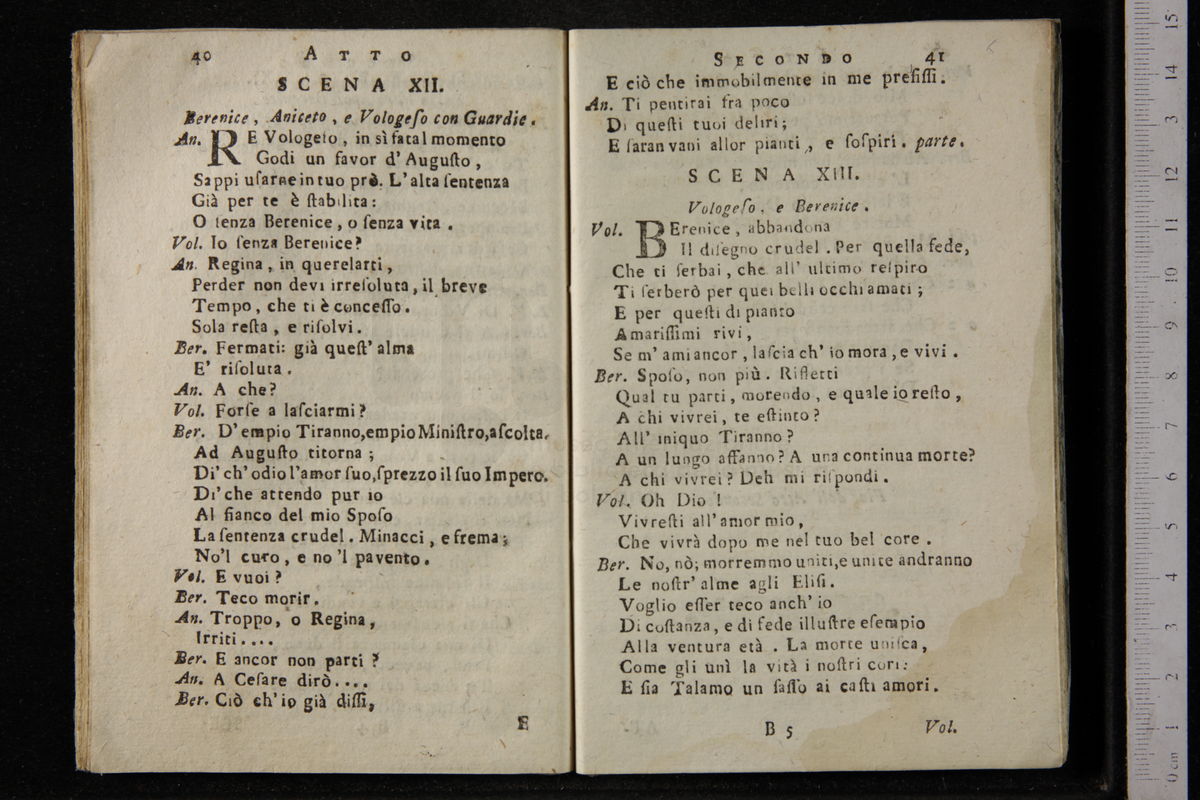 40 ATTO
SCENA XII.
Berenice, Aniceto, e Vologeſo con Guardie.
An. RE Vologeſo, in sì fatal momento
Godi un favor d' Auguſto,
Sappi uſarne in tuo prò. L'alta ſentenza
Già per te è ſtabilita:
O ſenza Berenice, o ſenza vita.
Vol. Io ſenza Berenice?
An. Regina, in querelarti,
Perder non devi irreſoluta, il breve
Tempo, che ti è conceſſo.
Sola reſta, e riſolvi.
Ber. Fermati: già queſt' alma
E' riſoluta.
An. A che?
Vol. Forſe a laſciarmi?
Ber. D' empio Tiranno, empio Miniſtro, aſcolta.
Ad Auguſto titorna;
Di' ch' odio l'amor ſuo, ſprezzo il ſuo Impero.
Di' che attendo pur io
Al fianco del mio Spoſo
La ſentenza crudel. Minacci, e frema;
No'l curo, e no 'l pavento.
Vol. E vuoi?
Ber. Teco morir.
An. Troppo, o Regina,
Irriti....
Ber. E ancor non parti?
An. A Ceſare dirò....
Ber. Ciò ch' io già diſſi,
E
SECONDO 41
E ciò che immobilmente in me prefiſſi.
An. Ti pentirai fra poco
Di queſti tuoi deliri;
E ſaran vani allor pianti, e ſoſpiri. parte.
SCENA XIII.
Vologeſo, e Berenice.
Vol. BErenice, abbandona
Il diſegno crudel. Per quella fede,
Che ti ſerbai, che all' ultimo reſpiro
Ti ſerberò per quei belli occhi amati;
E per queſti di pianto
Amariſſimi rivi,
Se m' ami ancor, laſcia ch' io mora, e vivi.
Ber. Spoſo, non più. Rifletti
Qual tu parti, morendo, e quale io reſto,
A chi vivrei, te eſtinto?
All' iniquo Tiranno?
A un lungo affanno? A una continua morte?
A chi vivrei? Deh mi riſpondi.
Vol. Oh Dio!
Vivreſti all' amor mio,
Che vivrà dopo me nel tuo bel core.
Ber. No, nò; morremmo uniti, e unite andranno
Le noſtr' alme agli Eliſi.
Voglio eſſer teco anch' io
Di coſtanza, e di fede illuſtre eſempio
Alla ventura età. La morte uniſca,
Come gli unì la vità i noſtri cori:
E ſia Talamo un ſaſſo ai caſti amori.
B 5 Vol.
0 cm 1 2 3 4 5 6 7 8 9 10 11 12 3 14 15